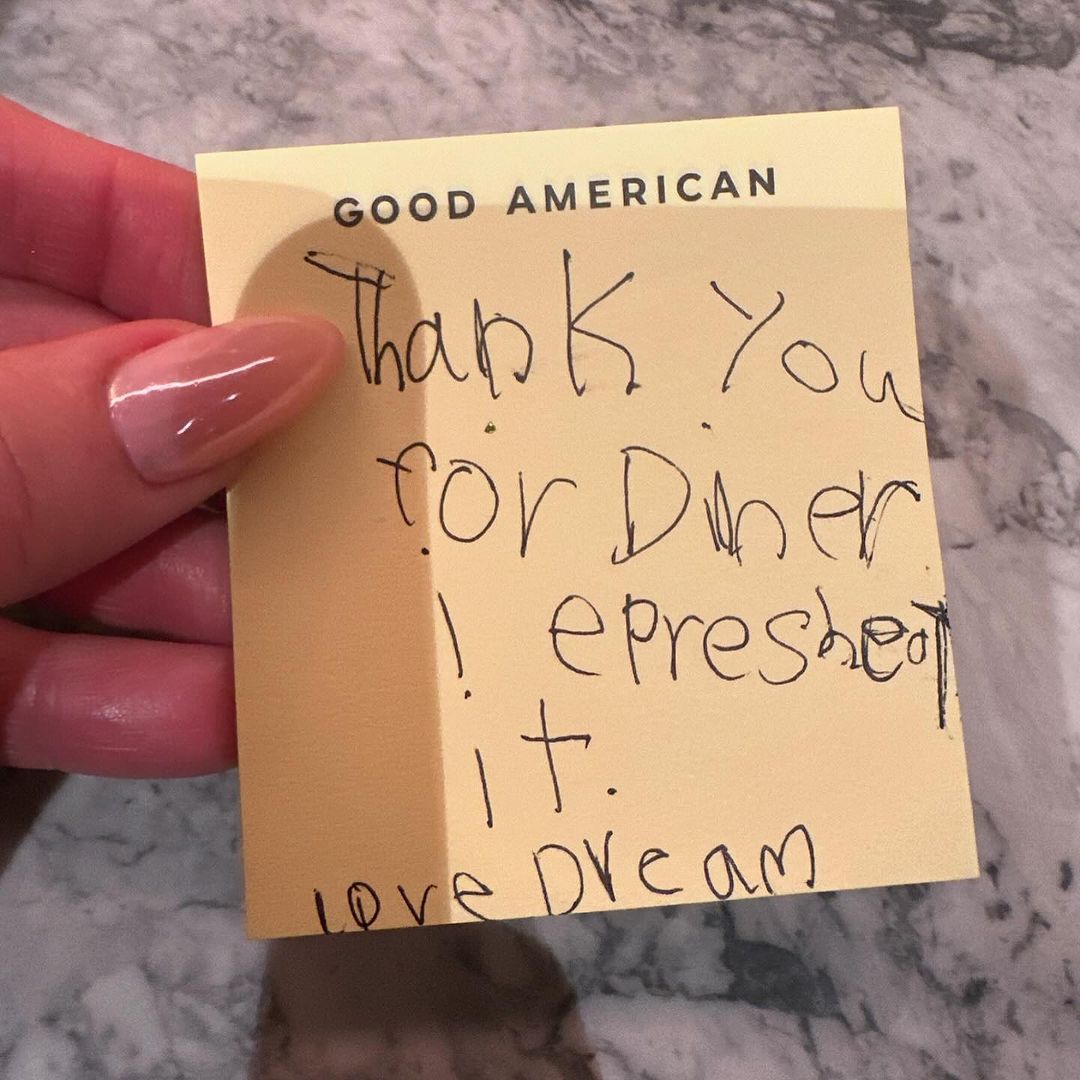 GOOD AMERICAN
Thank You
for Diner
I epresheat
it.
Love Dream